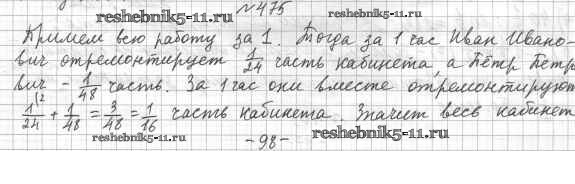 №475
reshebnik5-11.ru
Примем всю работу за 1. Тогда за 1 час Иван Ивано-
reshebnik5-11.ru
вич отремонтирует 1/24 часть кабинета, а Пётр Петро
вич - 1/48 часть. За 1 час они вместе отремонтируют
1/24 (2 + 1/48 = 3/48 = 1/16 часть кабинета. Значит весь кабинет
reshebnik5-11.ru
-98-
reshebnik5-11.ru